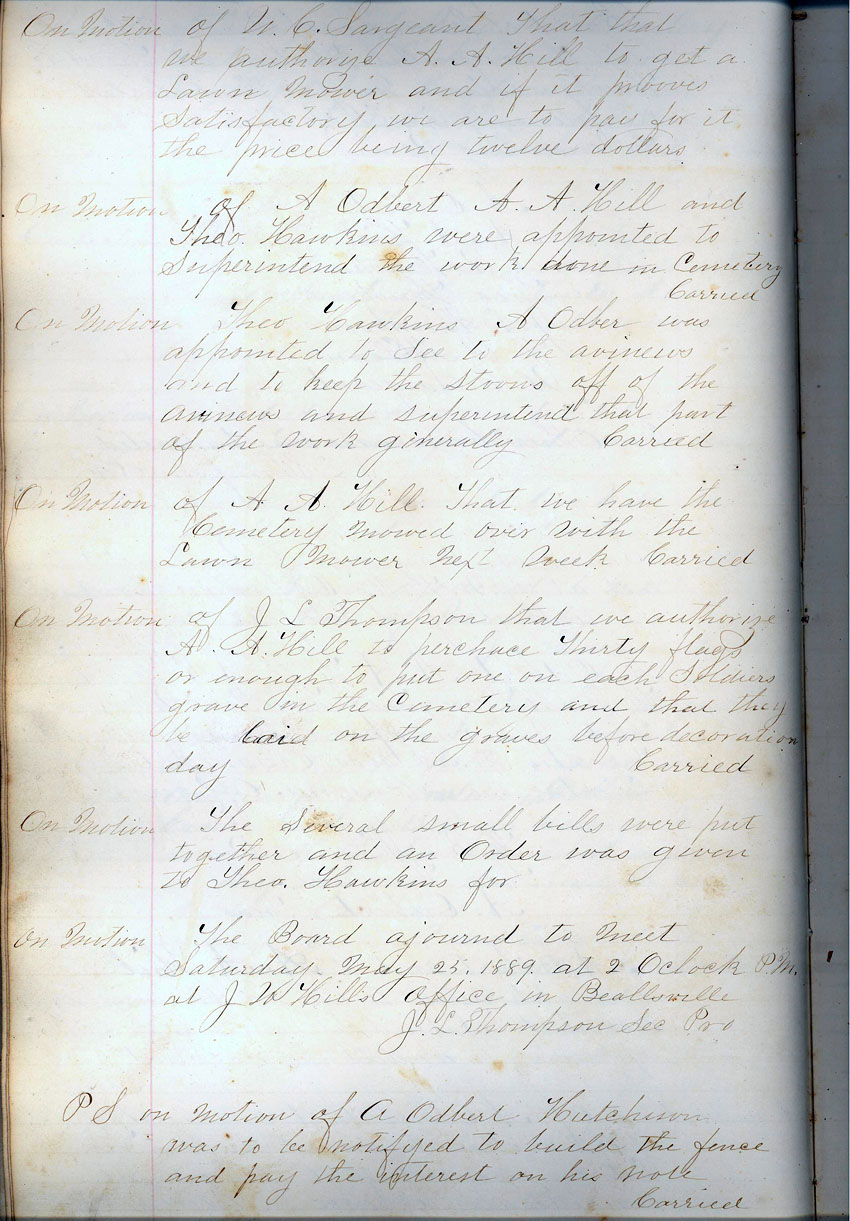 On Motion of U. C. Sargeant That that
we authorize A. A. Hill to get a
Lawn Mower and if it prooves
Satisfactory we are to pay for it
the price being twelve dollars
On Motion of A Odbert A. A Hill and
Theo. Hawkins were appointed to
Superintend the work done in Cemetery
Carried
On Motion Theo Hawkins A Odber was
appointed to See to the avinews
and to keep the stoons off of the
avinews and superintend that part
of the work generally Carried
On Motion of A A. Hill. That we have the
Cemetery mowed over with the
Lawn Mower Next week Carried
On Motion of J L Thompson that we authorize
A. A. Hill to perchace Thirty flags
or enough to put one on each Soldiers
grave in the Cemetery and that they
be laid on the graves before decoration
day Carried
On Motion The Several small bills were put
together and an Order was given
to Theo. Hawkins for
On Motion The Board ajournd to meet
Saturday May 25. 1889. at 2 Oclock P.M.
at J W Hills Office in Beallsville
J. L. Thompson Sec Pro
P S on motion of A Odbert Hutchison
was to be notifyed to build the fence
and pay the interest on his note
Carried